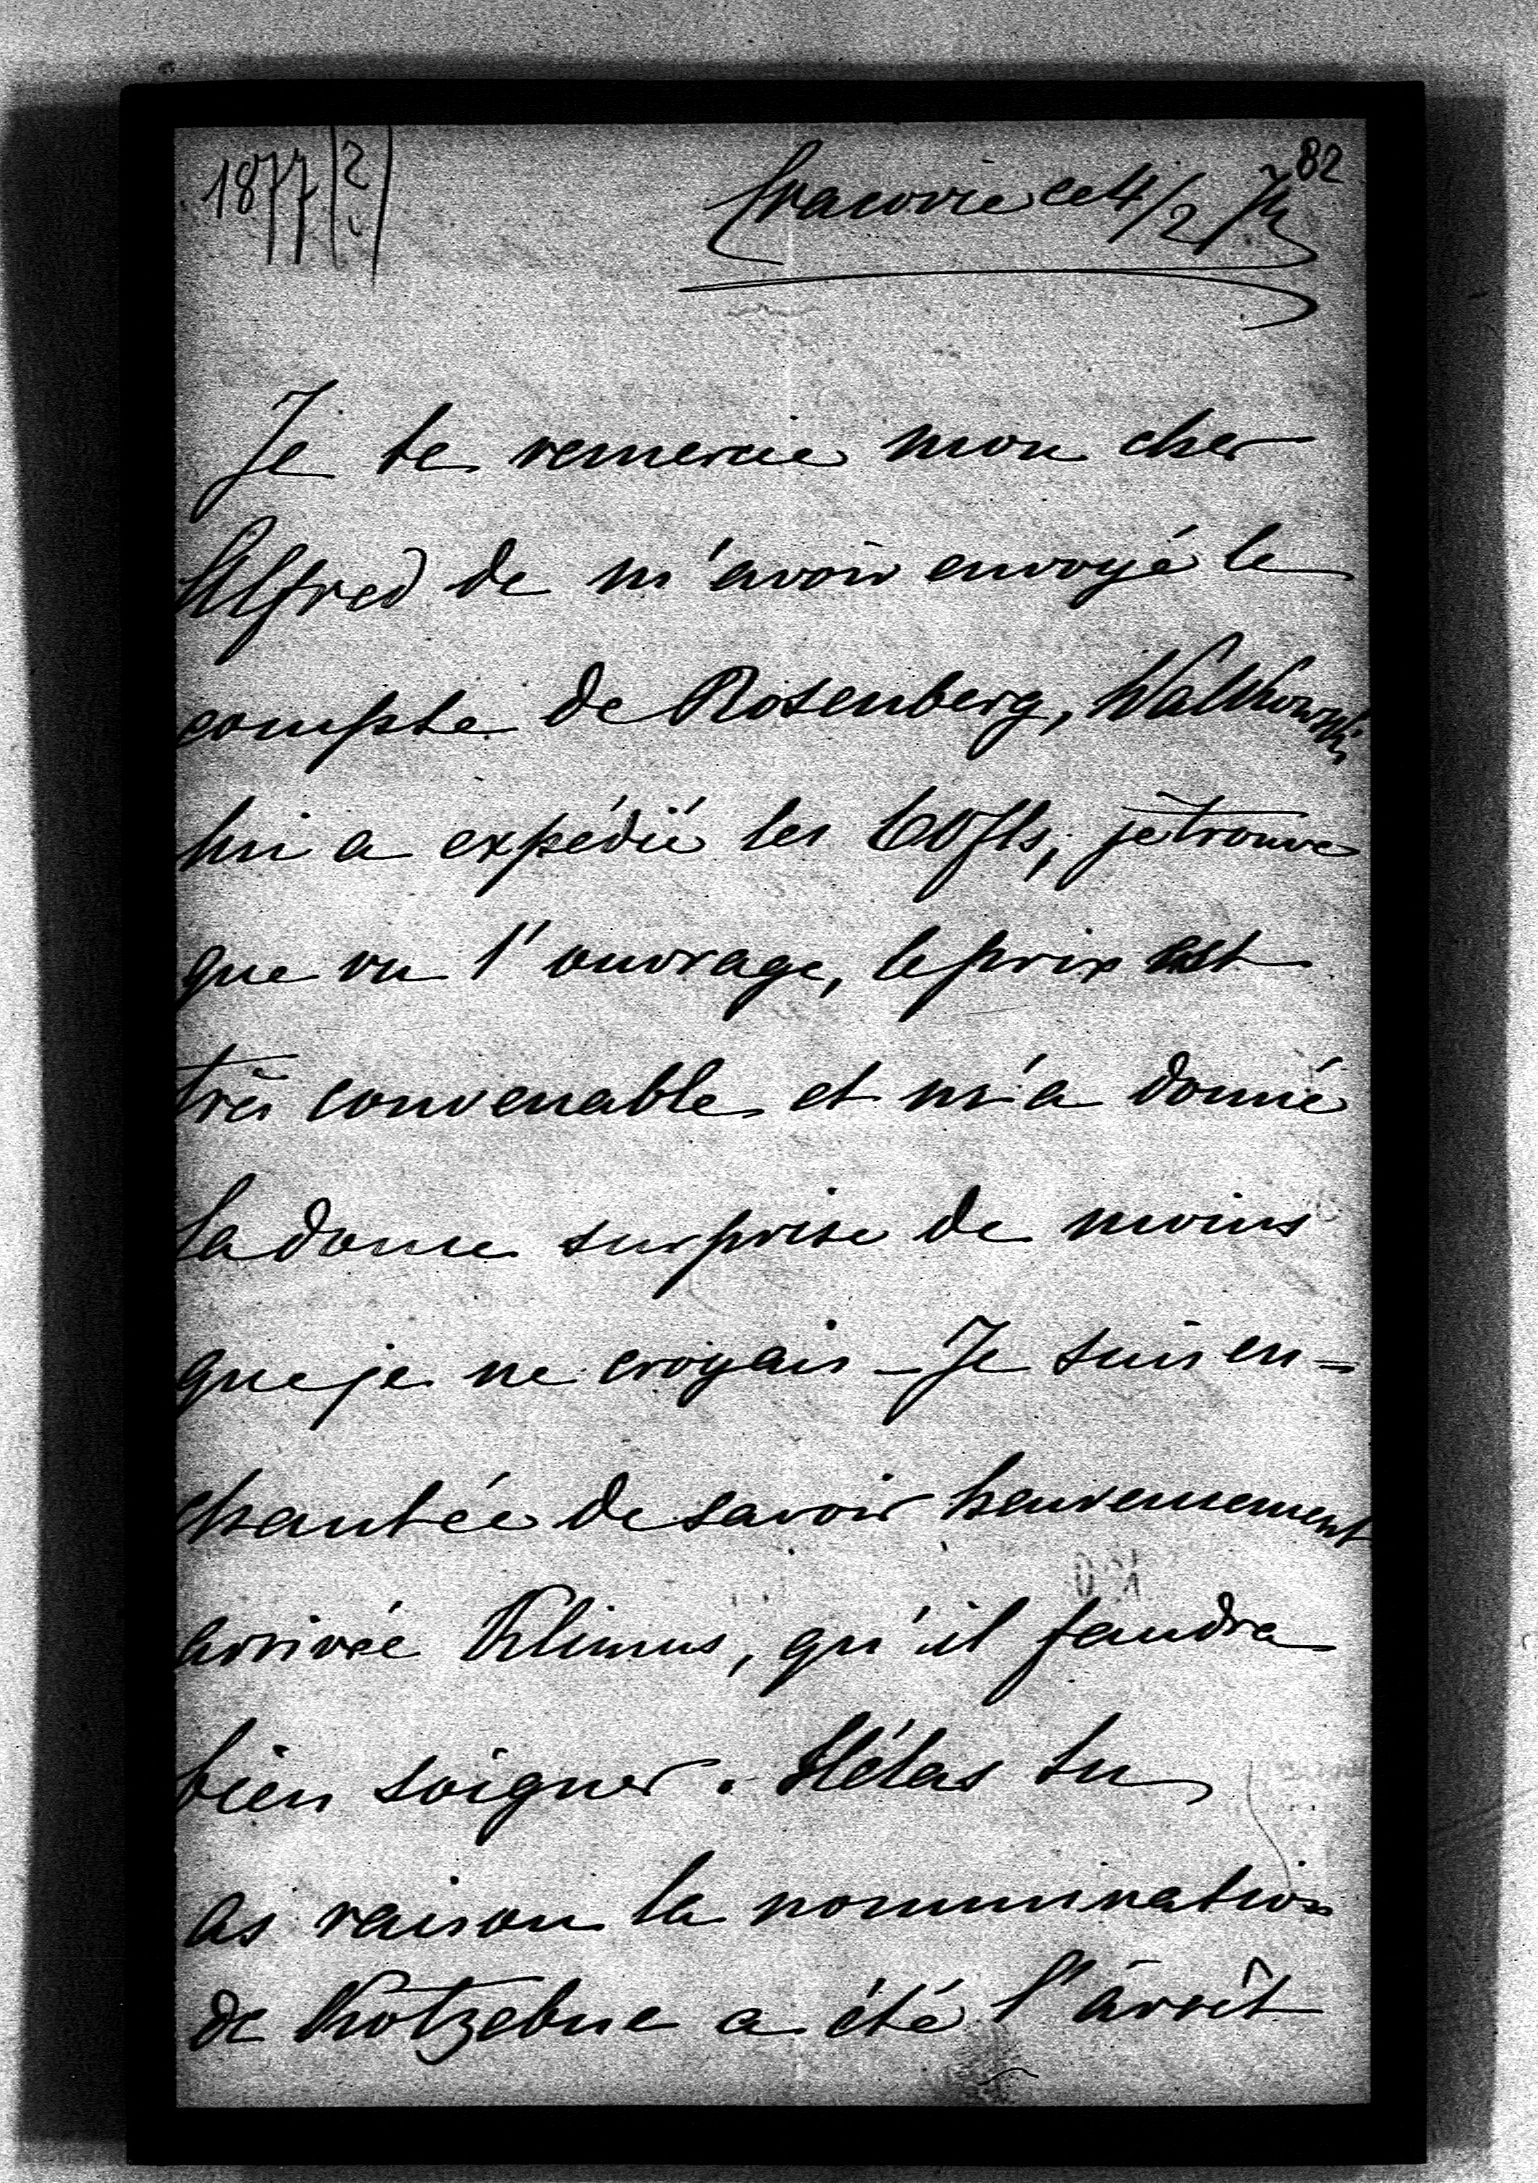 1877 (?)
82
Cracovie ce 4/2
Je te remercie mon cher
Alfred de m'avoir envoyé le
compte de Rosenberg, Walkowski
lui a expédié les 60 fls, je trouve
que vu l'ouvrage, le prix est
très convenable et m'a donné
la douce surprise de moins
que je ne croyais – Je suis en=
chantée de savoir heureusement
arrivée Klimus, qu'il faudra
bien soigner. Hélas tu
as raison la nommination
de Kotzebue a été l'arrêt